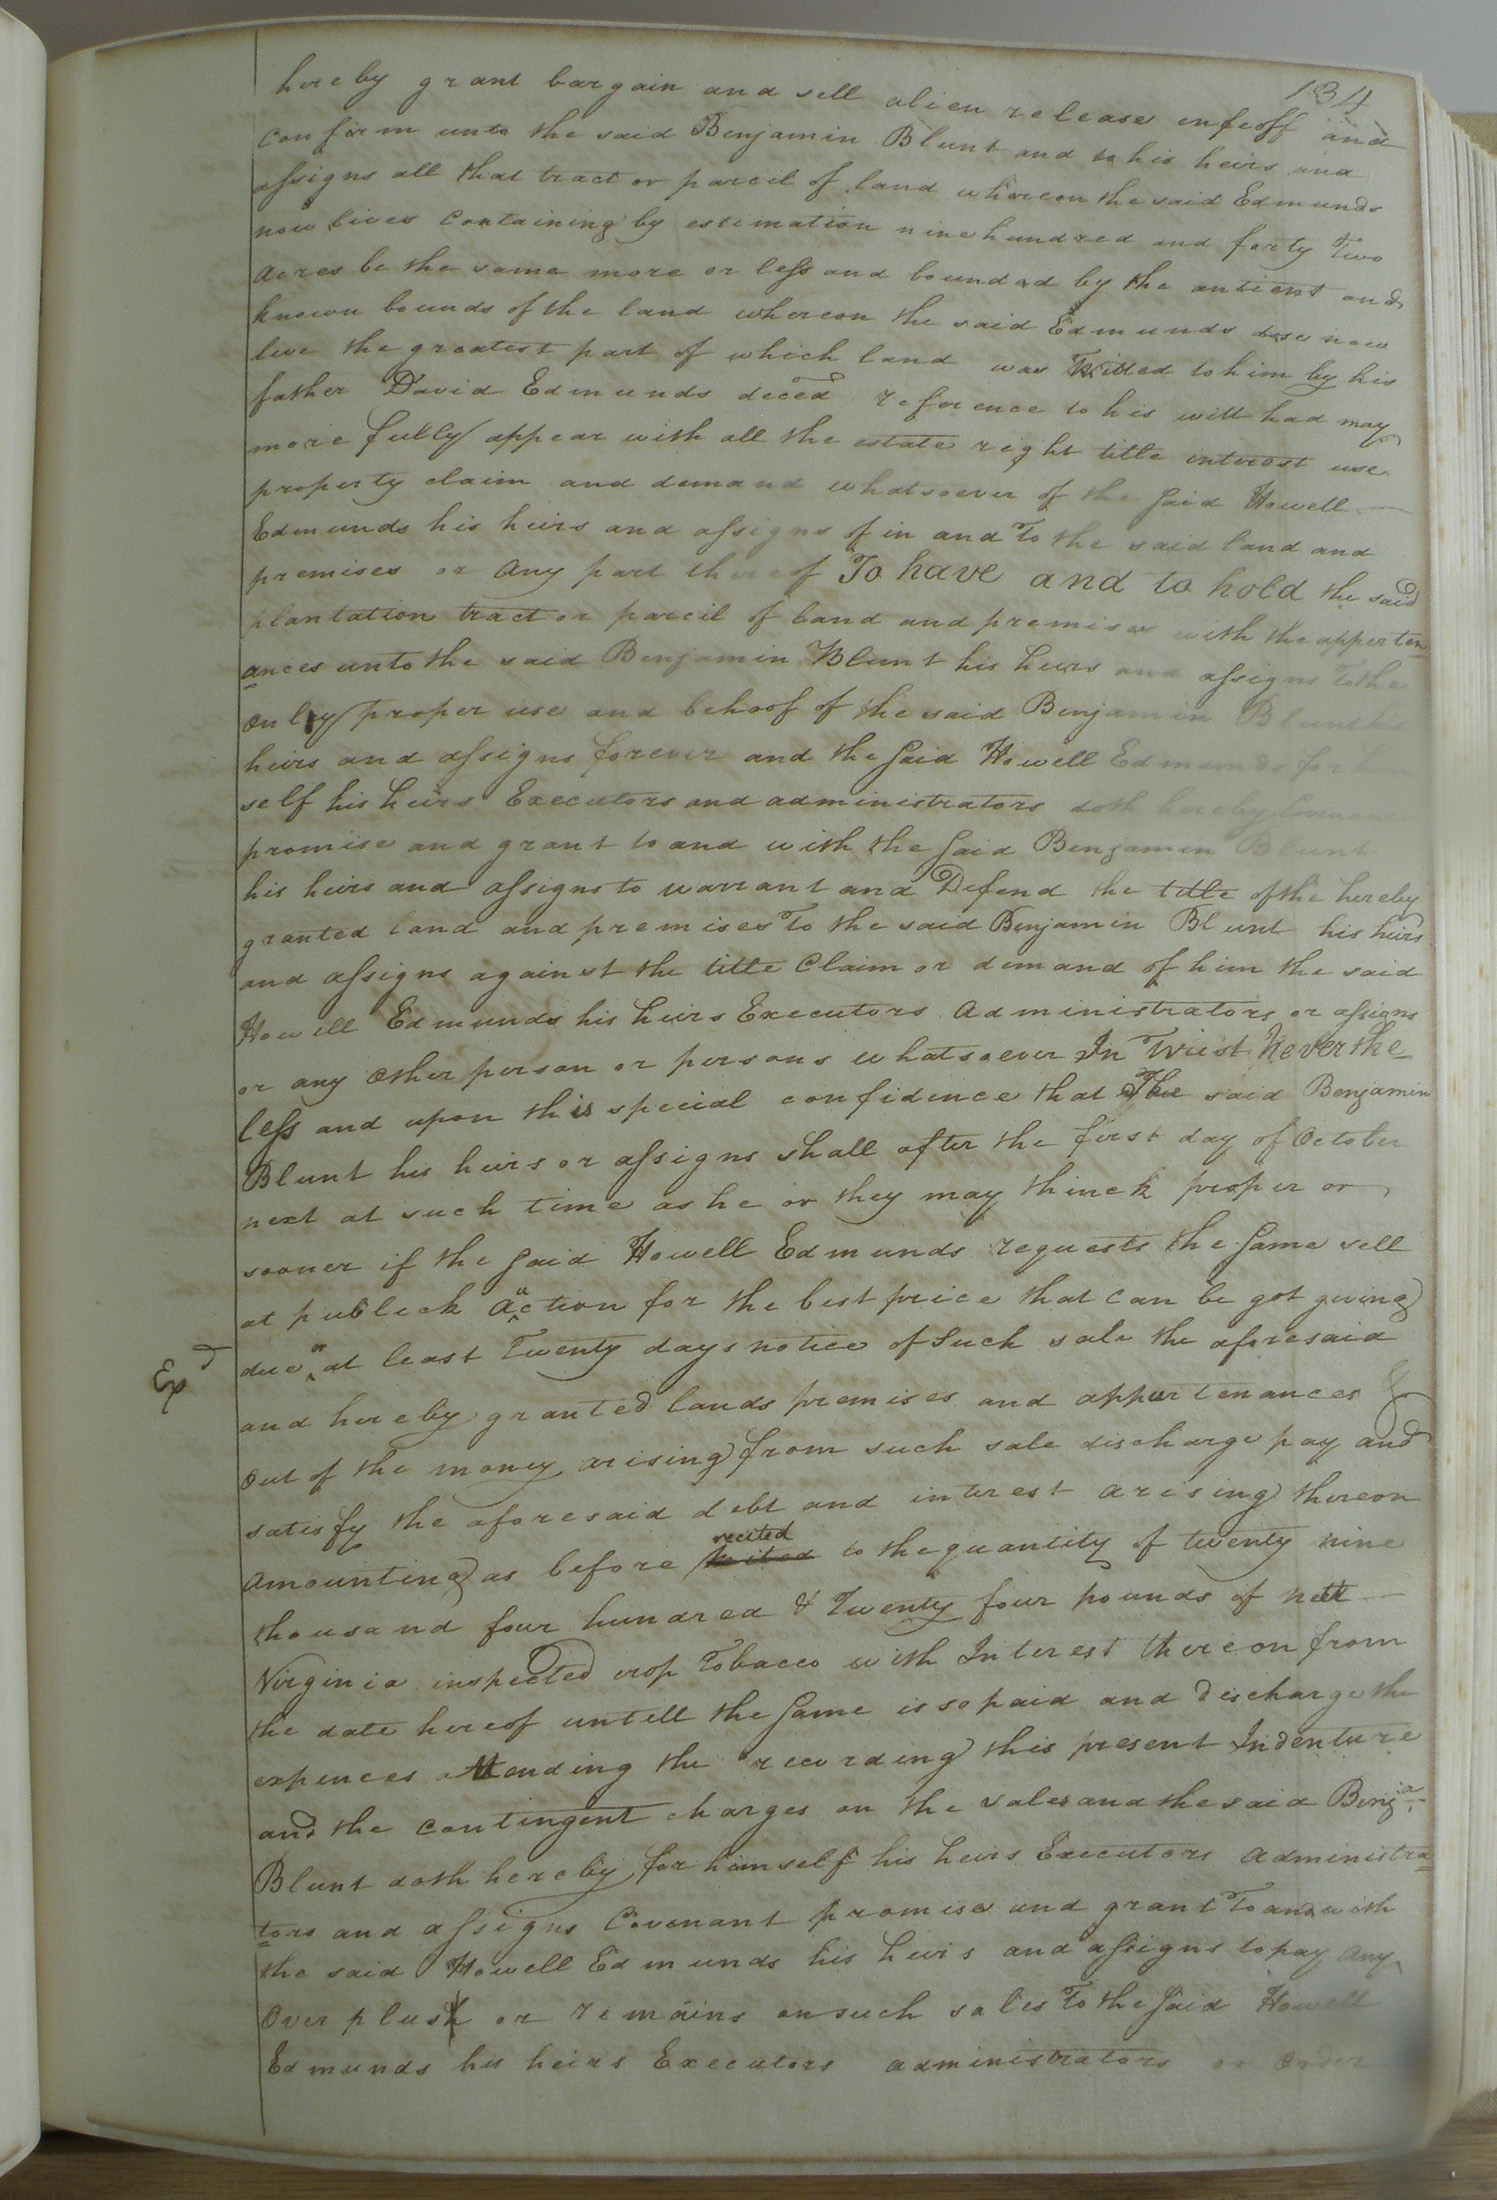 134
hereby grant bargain and sell alien release enfeoff and
confirm unto the said Benjamin Blunt and to his heirs and
assigns all that tract or parcel of land whereon the said Edmunds
now lives Containing by estimation nine hundred and forty Two
acres be the same more or less and bounded by the antient and
known bounds of the land whereon the said Edmunds dose now
live the greatest part of which land was Willed to him by his
father David Edmunds deced reference to his will had may
more fully appear with all the estate right title interest use
property claim and demand whatsoever of the said Howell
Edmunds his heirs and assigns of in and To the said land and
premises or any part thereof To have and to hold the said
plantation tract or parcil of land and premises with the apperten
ances unto the said Benjamin Blunt his heirs and assigns To the
only proper use and behoof of the said Benjamin Blunt his
heirs and assigns forever and the said Howell Edmunds for him
self his heirs Executors and administrators doth hereby Covenant
promise and grant to and with the said Benjamin Blunt
his heirs and assigns to warrant and Defend the title of the hereby
granted land and premises To the said Benjamin Blunt his heirs
and assigns against the title Claim or demand of him the said
Howell Edmunds his heirs Executors Administrators or assigns
or any other person or persons whatsoever In Trust Neverthe
less and upon this special confidence that The said Benjamin
Blunt his heirs or assigns shall after the first day of October
next at such time as he or they may thinck proper or
sooner if the said Howell Edmunds requests the same sell
at publick auction for the best price that can be got giving
due or at least Twenty days notice of such sale the aforesaid
Exd
and hereby granted lands premises and appurtenances &
out of the money arising from such sale discharge pay and
satisfy the aforesaid debt and interest arising thereon
amounting as before recited to the quantity of twenty nine
thousand four hundred & Twenty four pounds of nett
Virginia inspected crop Tobacco with Interest thereon from
the date hereof untill the same is so paid and discharge the
expences attending the recording this present Indenture
and the contingent charges on the sales and the said Benja
Blunt doth hereby for himself his heirs Executors administra
tors and assigns Covenant promise and grant To and with
the said Howell Edmunds his heirs and assigns to pay any
over plus or remains on such sales To the said Howell
Edmunds his heirs Executors administrators or order